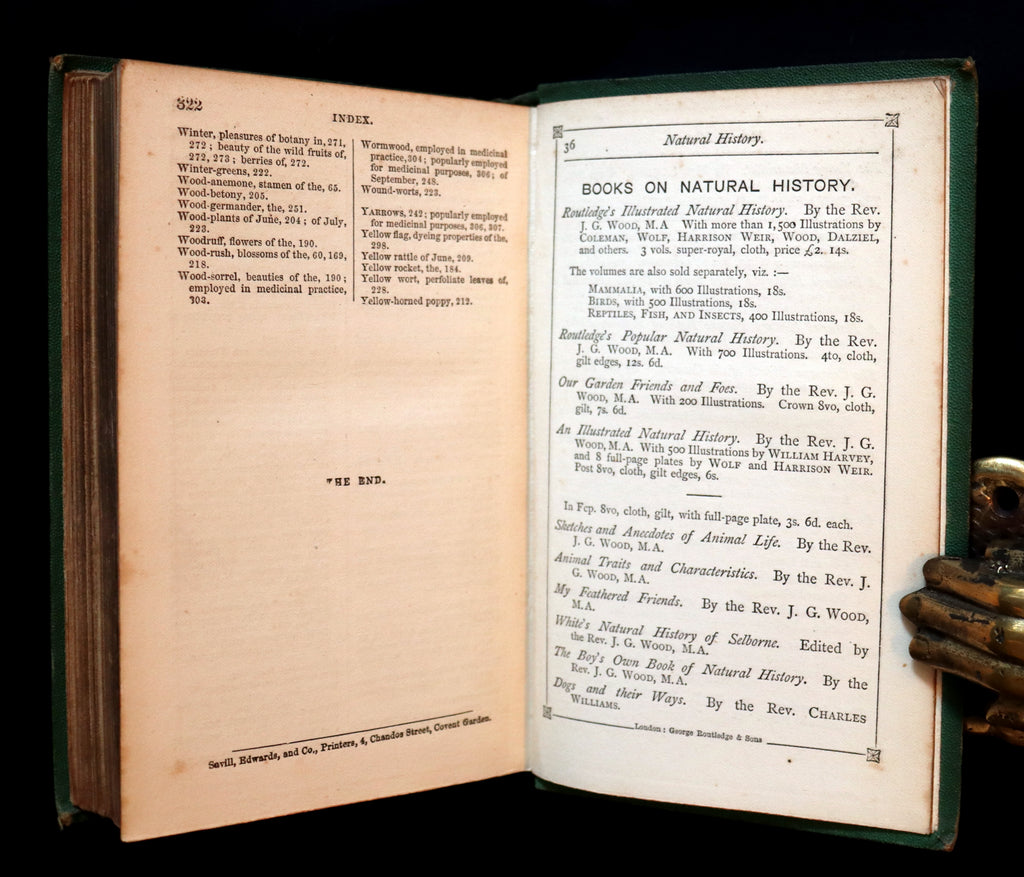 322
INDEX.
Winter, pleasures of botany in, 271,
272; beauty of the wild fruits of,
272, 273; berries of, 272.
Winter-greens, 222.
Wood-anemone, stamen of the, 65.
Wood-betony, 205.
Wood-germander, the, 251.
Wood-plants of June, 204; of July,
223.
Woodruff, flowers of the, 190.
Wood-rush, blossoms of the, 60, 169,
218.
Wood-sorrel, beauties of the, 190;
employed in medicinal practice,
303.
Wormwood, employed in medicinal
practice, 304; popularly employed
for medicinal purposes, 306; of
September, 248.
Wound-worts, 223.
YARROWS, 242; popularly employed
for medicinal purposes, 306, 307.
Yellow flag, dyeing properties of the,
298.
Yellow rattle of June, 209.
Yellow rocket, the, 184.
Yellow wort, perfoliate leaves of,
228.
Yellow-horned poppy, 212.
THE END.
Savill, Edwards, and Co., Printers, 4, Chandos Street, Covent Garden.
36
Natural History.
BOOKS ON NATURAL HISTORY.
Routledge's Illustrated Natural History. By the Rev.
J. G. WOOD, M.A With more than 1,500 Illustrations by
COLEMAN, WOLF, HARRISON WEIR, WOOD, DALZIEL,
and others. 3 vols. super-royal, cloth, price £2. 14s.
The volumes are also sold separately, viz. :—
MAMMALIA, with 600 Illustrations, 18s.
BIRDS, with 500 Illustrations, 18s.
REPTILES, FISH, AND INSECTS, 400 Illustrations, 18s.
Routledge's Popular Natural History. By the Rev.
J. G. WOOD, M.A. With 700 Illustrations. 4to, cloth,
gilt edges, 12s. 6d.
Our Garden Friends and Foes. By the Rev. J. G.
WOOD, M.A. With 200 Illustrations. Crown 8vo, cloth,
gilt, 7s. 6d.
An Illustrated Natural History. By the Rev. J. G.
WOOD, M.A. With 500 Illustrations by WILLIAM HARVEY,
and 8 full-page plates by WOLF and HARRISON WEIR.
Post 8vo, cloth, gilt edges, 6s.
In Fcp. 8vo, cloth, gilt, with full-page plate, 3s. 6d. each.
Sketches and Anecdotes of Animal Life. By the Rev.
J. G. WOOD, M.A.
Animal Traits and Characteristics. By the Rev. J.
G. WOOD, M.A.
My Feathered Friends. By the Rev. J. G. WOOD,
M.A.
White's Natural History of Selborne. Edited by
the Rev. J. G. WOOD, M.A.
The Boy's Own Book of Natural History. By the
Rev. J. G. WOOD, M.A.
Dogs and their Ways. By the Rev. CHARLES
WILLIAMS.
London: George Routledge & Sons